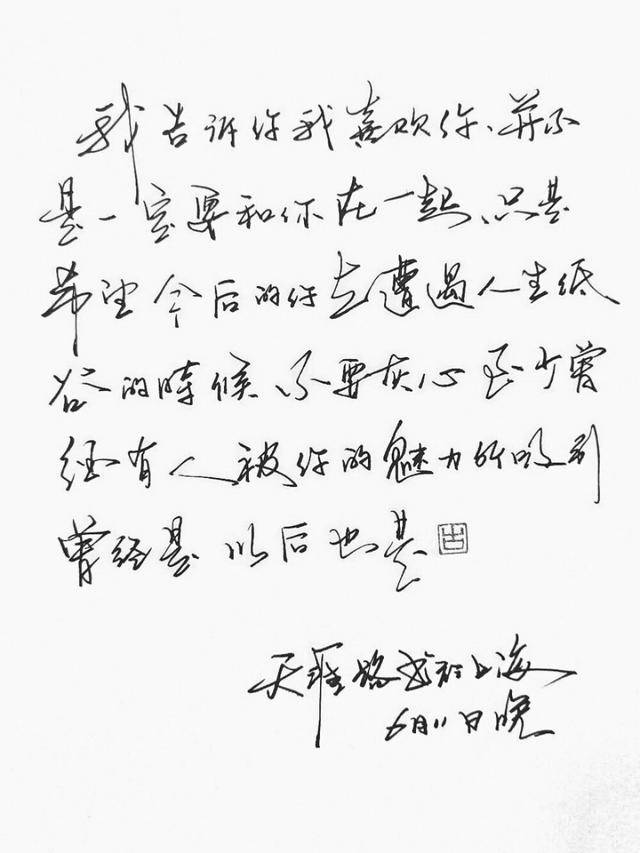 我告诉你我喜欢你、并不
是一定要和你在一起、只是
希望今后的你在遭遇人生低
谷的時候、不要灰心至少曾
经有人被你的魅力所吸引
曾经是以后也是
天涯路书於上海
6月11日晚